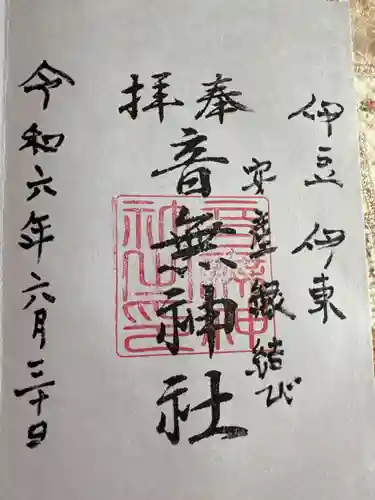 伊豆 伊東
安産 縁結び
奉拝
音無神社
令和六年六月三十日